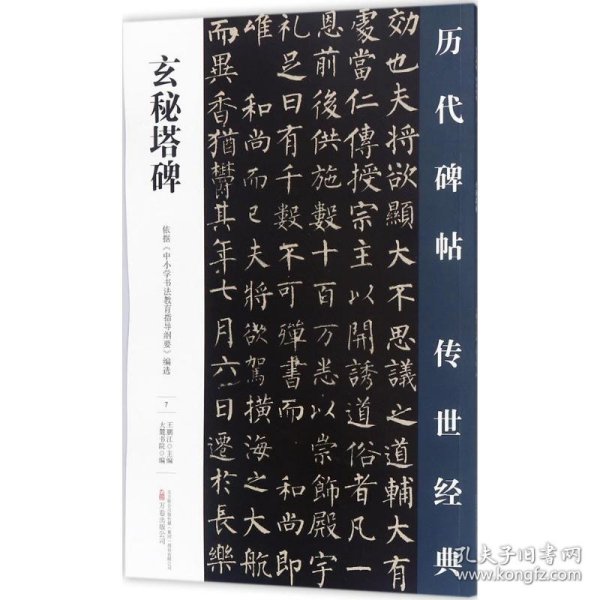 历代碑帖 传世经典
効也夫将欲顯大不思議之道輔大
處當仁傳授宗主以開誘道俗者凡一
恩前後供施數十百万悉以崇飾殿宇
礼足日有千數不可殫書而 和尚即
唯 和尚而已夫将欲駕橫海之大航
而異香猶鬱其年七月六日遷於長樂
玄秘塔碑
依据《中小学书法教育指导纲要》编选
7
王鹏江○主编
大麓书院○编
万卷出版公司
孔夫子旧书网
kongfz.com